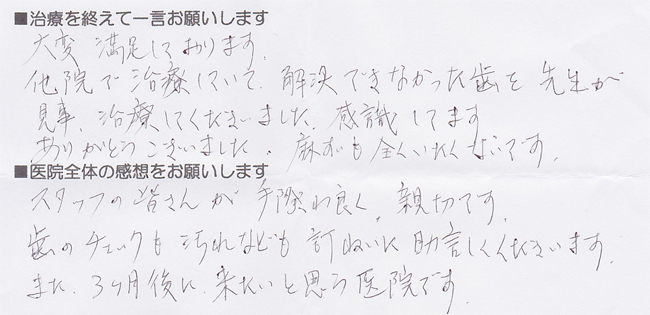 ■治療を終えて一言お願いします
大変 満足しております。
他院で治療していて、解決できなかった歯を先生が
見事、治療してくださいました。感識してます
ありがとうございました。麻すいも全くいたくないです。
■医院全体の感想をお願いします
スタッフの皆さんが手際わ良く、親切です。
歯のチェックも汚れなども訂ねいに助言しくださいます。
また、3ヶ月後に、来たいと思う医院です。